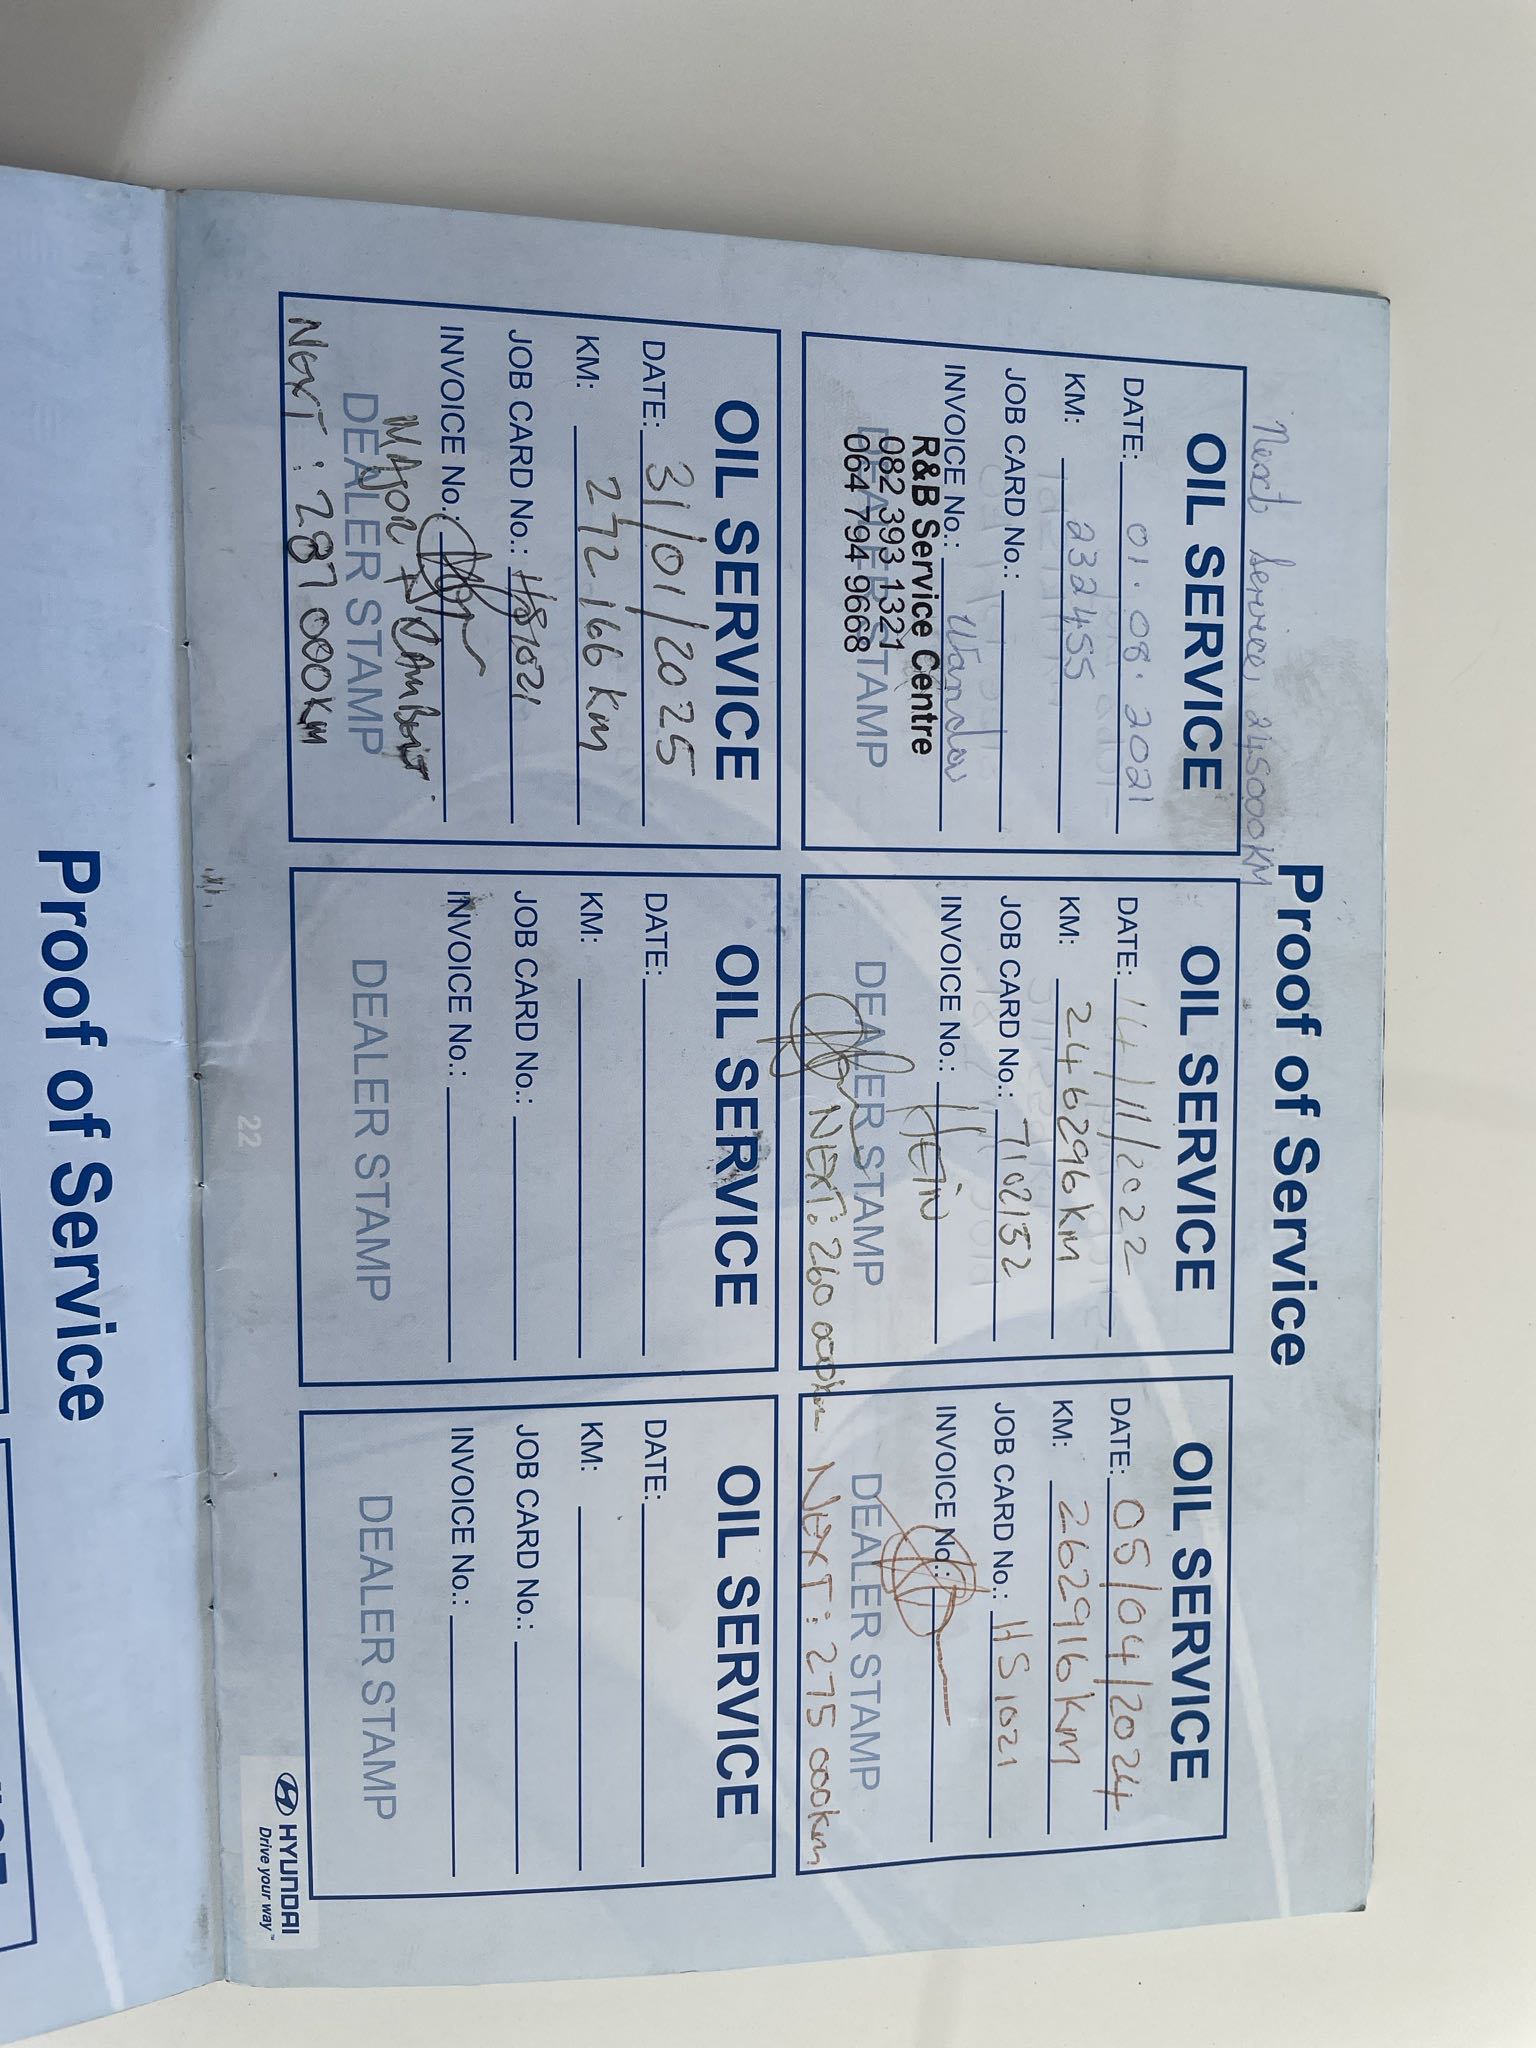 Proof of Service
Next Service, 245000KM
OIL SERVICE
DATE: 01.08.2021
KM: 232455
JOB CARD No.:
INVOICE No.: Wanda
R&B Service Centre
082 393 1321
064 794 9668
DEALER STAMP
OIL SERVICE
DATE: 14/11/2022
KM: 246296km
JOB CARD No.: 7102152
INVOICE No.: HEIN
DEALER STAMP
NEXT: 260 000km
OIL SERVICE
DATE: 05/04/2024
KM: 262916km
JOB CARD No.: HS1021
INVOICE No.:
DEALER STAMP
NEXT: 275 000km
OIL SERVICE
DATE: 31/01/2025
KM: 272 166 km
JOB CARD No.: HS1021
INVOICE No.:
MAJOR +
DEALER STAMP
NEXT: 287 000km
OIL SERVICE
DATE:
KM:
JOB CARD No.:
INVOICE No.:
DEALER STAMP
OIL SERVICE
DATE:
KM:
JOB CARD No.:
INVOICE No.:
DEALER STAMP
22
HYUNDAI
Drive your way™
Proof of Service